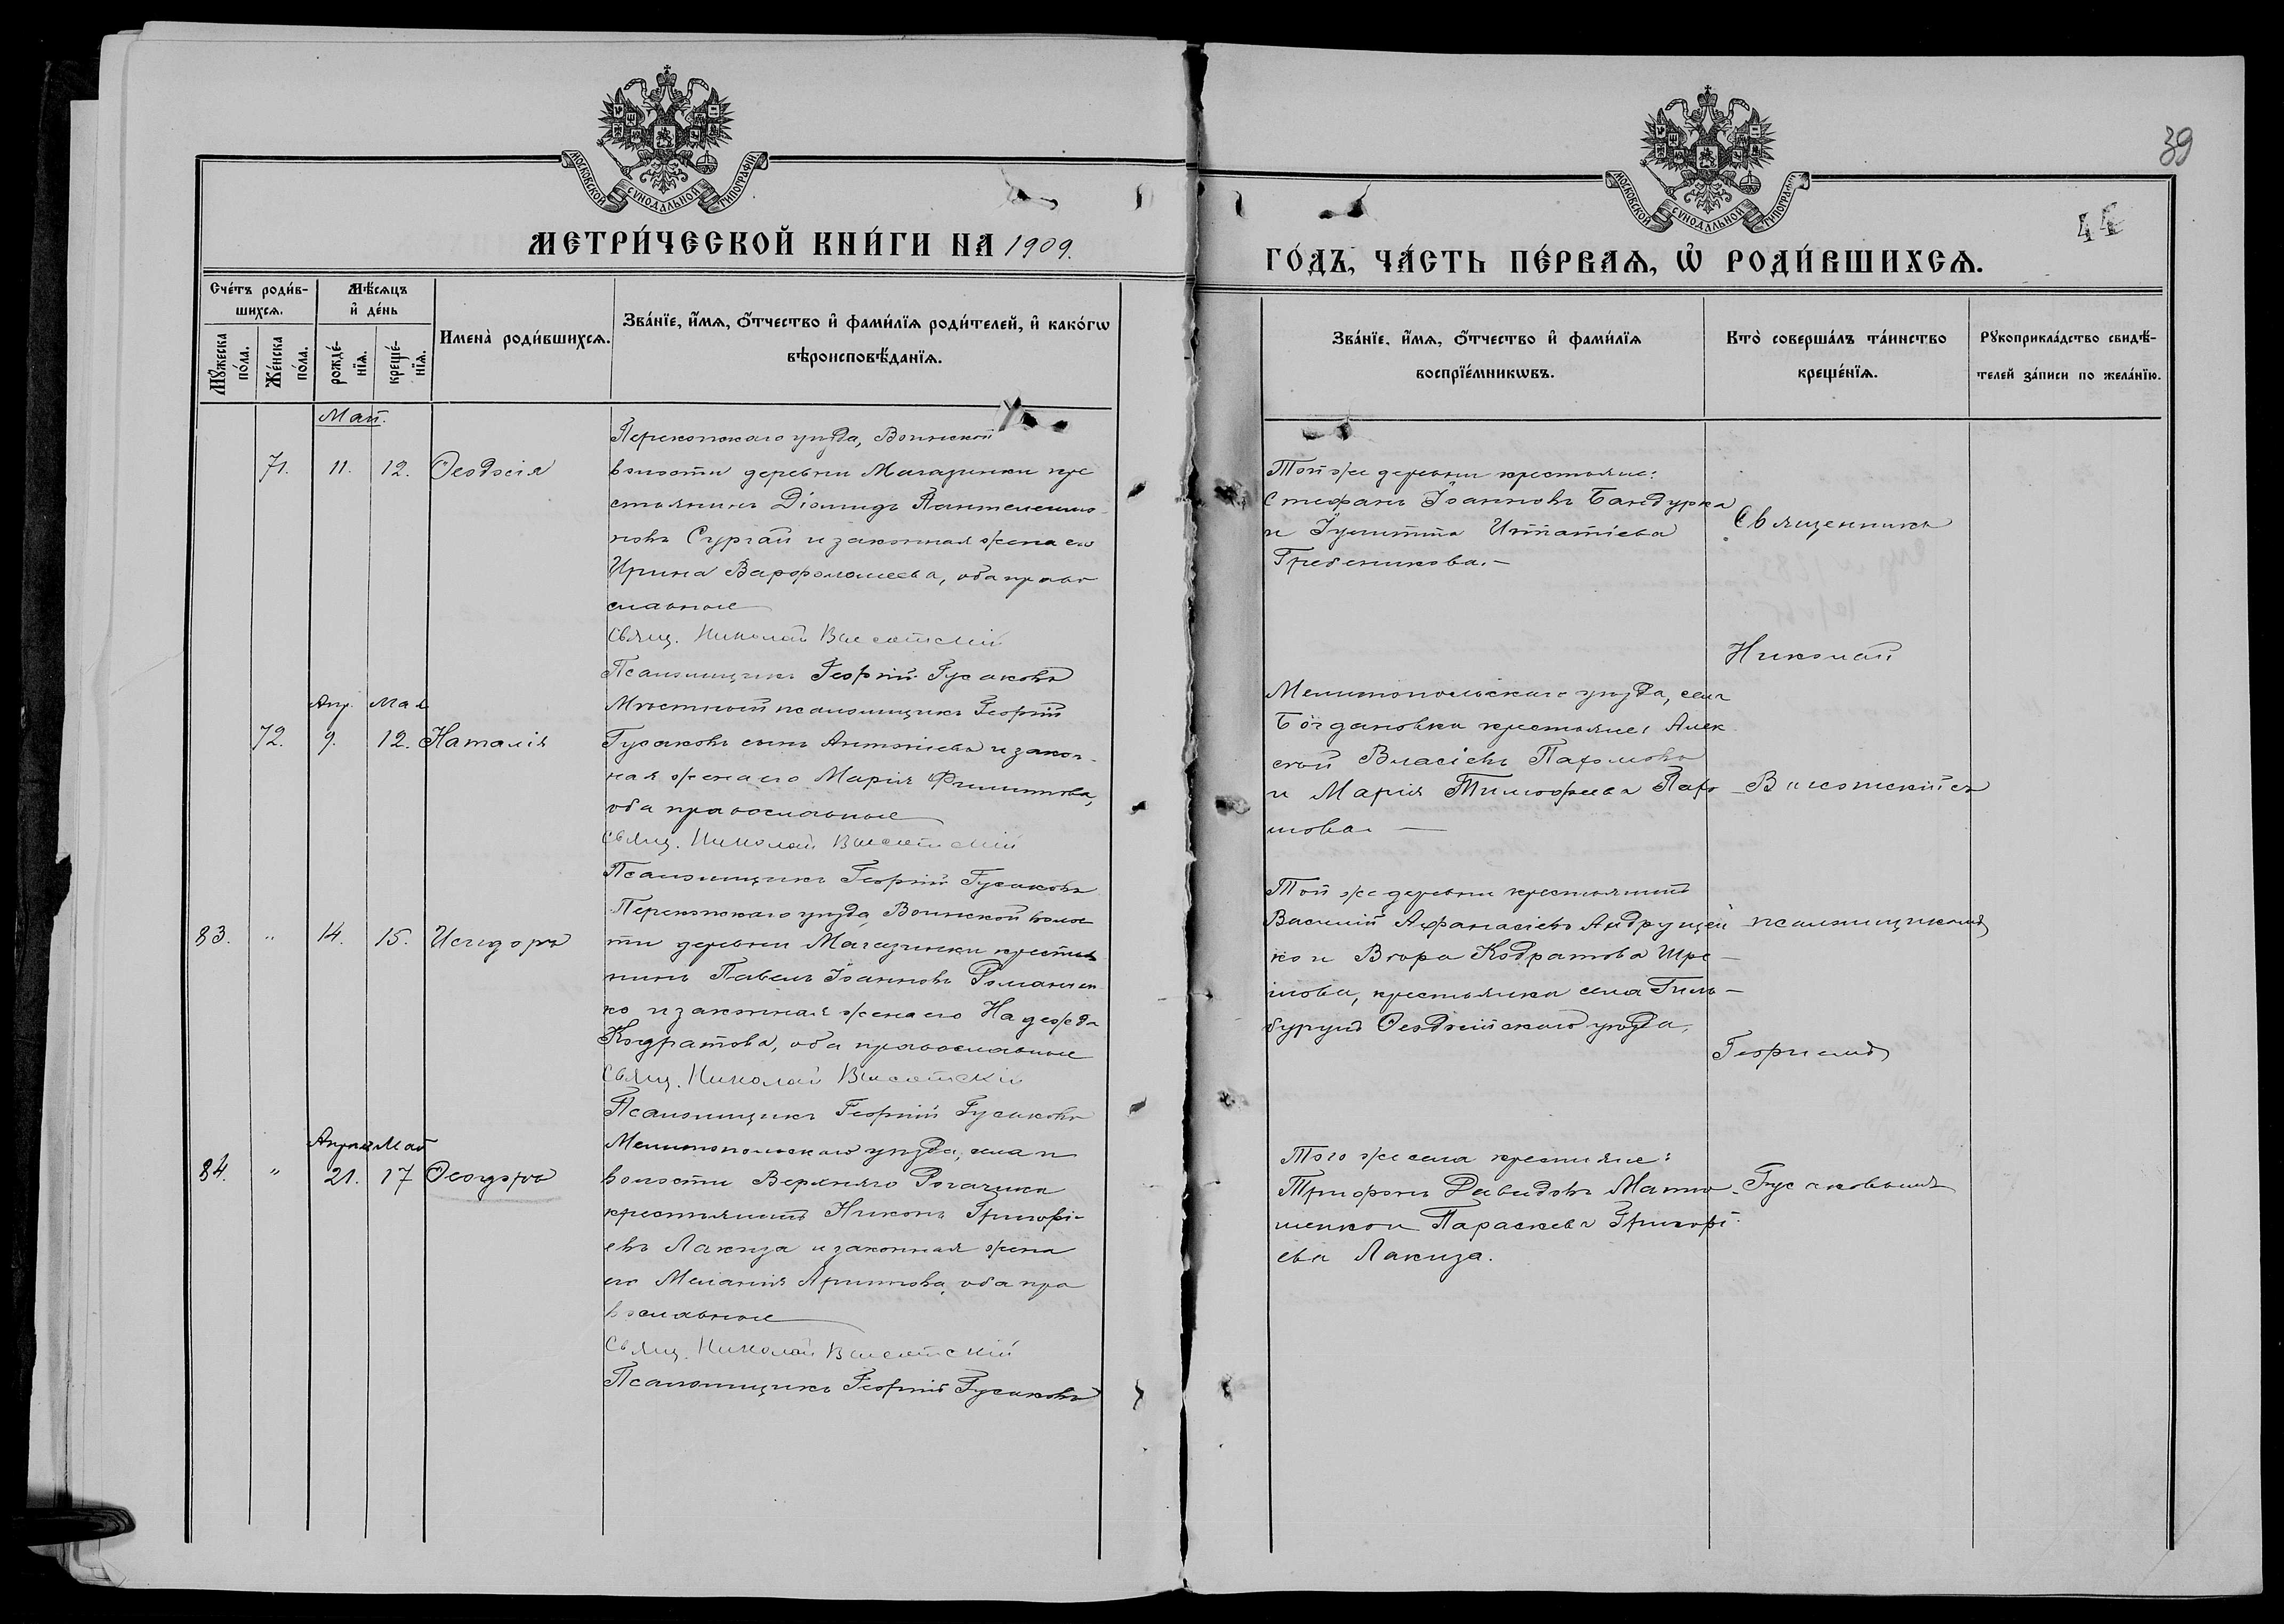 39
44
МОСКОВСКОЙ СѴНОДАЛЬНОЙ ТИПОГРАФІИ
МОСКОВСКОЙ СѴНОДАЛЬНОЙ ТИПОГРАФІИ
МЕТРИ́ЧЕСКОЙ КНИ́ГИ НА 1909.
ГО́ДЪ, ЧА́СТЬ ПЕ́РВАѦ, Ѡ҆ РОДИ́ВШИХСѦ.
Сче́тъ роди́в-
шихсѧ.
Мꙋ́жеска по́ла.
Же́нска по́ла.
Мѣ́сѧцъ
и҆ де́нь
рожде́-нїѧ.
креще́-нїѧ.
Имена̀ роди́вшихсѧ.
Зва́нїе, и҆́мѧ, ѻ҆́тчество и҆ фами́лїѧ роди́телей, и҆ како́гѡ
вѣроисповѣ́данїѧ.
Зва́нїе, и҆́мѧ, ѻ҆́тчество и҆ фами́лїѧ
воспрїе́мникѡвъ.
Кто̀ соверша́лъ та́инство
креще́нїѧ.
Рꙋкоприкла́дство свидѣ́-
телей за́писи по жела́нїю.
Май.
71. 11. 12. Ѳеодосія
Перекопскаго уѣзда, Воинской
волости деревни Магазинки кре
стьянинъ Діомидъ Пантелеимо
новъ Сургай и законная жена его
Ирина Варфоломеева, оба право
славные
Свящ. Николай Высотскій
Псаломщикъ Георгій Гусаковъ
Той же деревни крестьяне:
Стефанъ Іоанновъ Бандурка
и Іулитта Игнатіева
Гребеникова.-
Священникъ
Николай
Высотскій съ
псаломщикомъ
Георгіемъ
Гусаковымъ
Апр. Мая
72. 9. 12. Наталія
Мѣстный псаломщикъ Георгій
Гусаковъ сынъ Антоніевъ и закон-
ная жена его Марія Филиппова,
оба православные
Свящ. Николай Высотскій
Псаломщикъ Георгій Гусаковъ
Мелитопольскаго уѣзда, села
Богдановки крестьяне: Алек
сѣй Власіевъ Пахомовъ
и Марія Тимофеева Пахо
мова. —
83. " 14. 15. Исидоръ
Перекопскаго уѣзда, Воинской волос
ти деревни Магазинки крестья
нинъ Павелъ Іоанновъ Романен
ко и законная жена его Надежда
Кодратова, оба православные
Свящ. Николай Высотскій
Псаломщикъ Георгій Гусаковъ
Той же деревни крестьянинъ
Василій Афанасіевъ Андрущен
ко и Вѣра Кодратова
крестьянка села
Ѳеодосійскаго уѣзда.
Апрѣля Май
84. " 21. 17 Ѳеодоръ
Мелитопольскаго уѣзда, села и
волости Верхняго Рогачика
крестьянинъ Никонъ Григорі-
евъ Лакиза и законная жена
его Меланія Архиппова, оба пра
вославные
Свящ. Николай Высотскій
Псаломщикъ Георгій Гусаковъ
Того же села крестьяне:
Трифонъ Давидовъ Матю
шенко и Параскева Григорі
ева Лакиза.